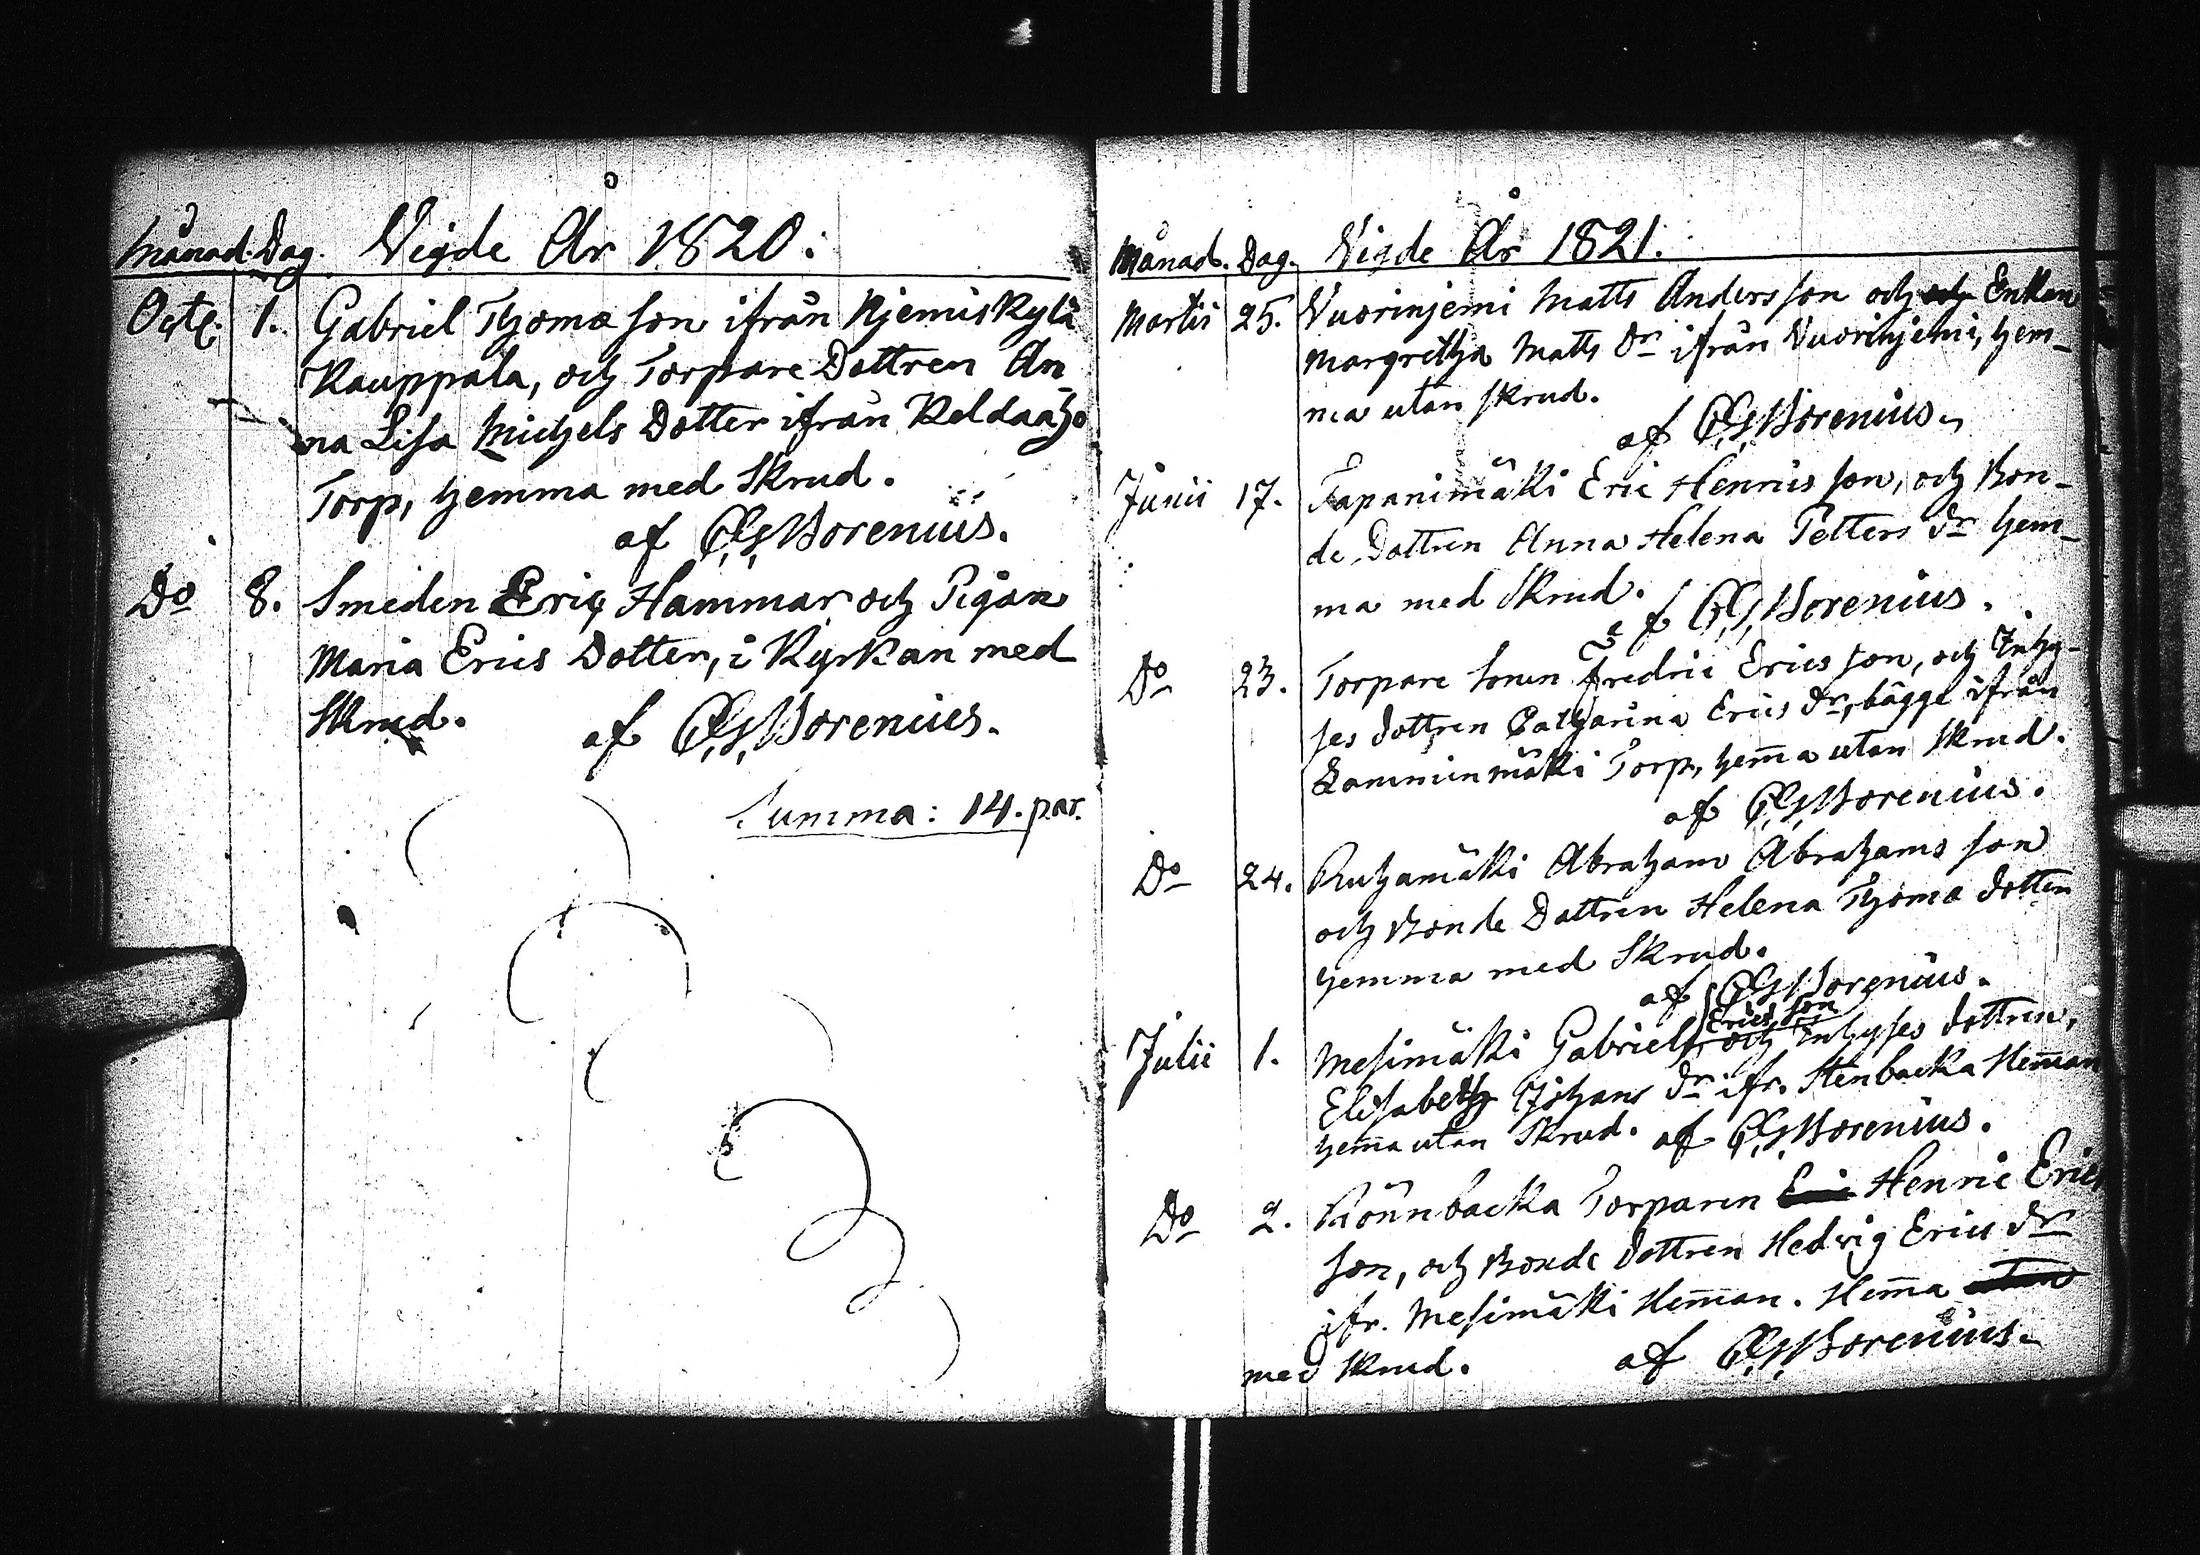 Månad. Dag. Vigde År 1820.
Octb. 1. Gabriel Thomæ son ifrån Njemiskylä
Kauppala, och Torpare Dottren An
na Lisa Michels Dotter ifrån Keldaaho
Torp, hemma med Skrud.
af CGBorenius.
Do 8. Smeden Eric Hammar och Pigan
Maria Erics Dotter, i Kyrkan med
Skrud. af CGBorenius.
Summa: 14. par.
Månad. Dag. Vigde År 1821.
Martii 25. Vuorinjemi Matts Andersson och och Enkan
Margretha Matts Dr ifrån Vuorinjemi, hem-
ma utan skrud.
af CGBorenius.
Junii 17. Tapanimäki Eric Henrics son, och Bon-
de Dottren Anna Helena Petters Dr hem-
ma med Skrud.
af CGBorenius.
Do 23. Torpare Sonen Fredric Ericsson, och Inhy-
ses dottren Catharina Erics Dr, bägge ifrån
Lamminmäki Torp, hem̅a utan Skrud.
af CGBorenius.
Do 24. Ruhamäki Abraham Abrahams son
och Bonde Dottren Helena Thomæ dotter
hemma med Skrud.
af CGBorenius.
Erics son
Julii 1. Mesimäki Gabriel och Inhyses dottren,
Elisabeth Johans Dr ifr. Stenbacka Hem̅an
hem̅a utan Skrud. af CGBorenius.
Do 2. Rönnbacka Torparen Eric Henric Erics
son, och Bonde dottren Hedvig Erics Dr
ifr. Mesimäki Hem̅an. Hem̅a utan
med Skrud. af CGBorenius.